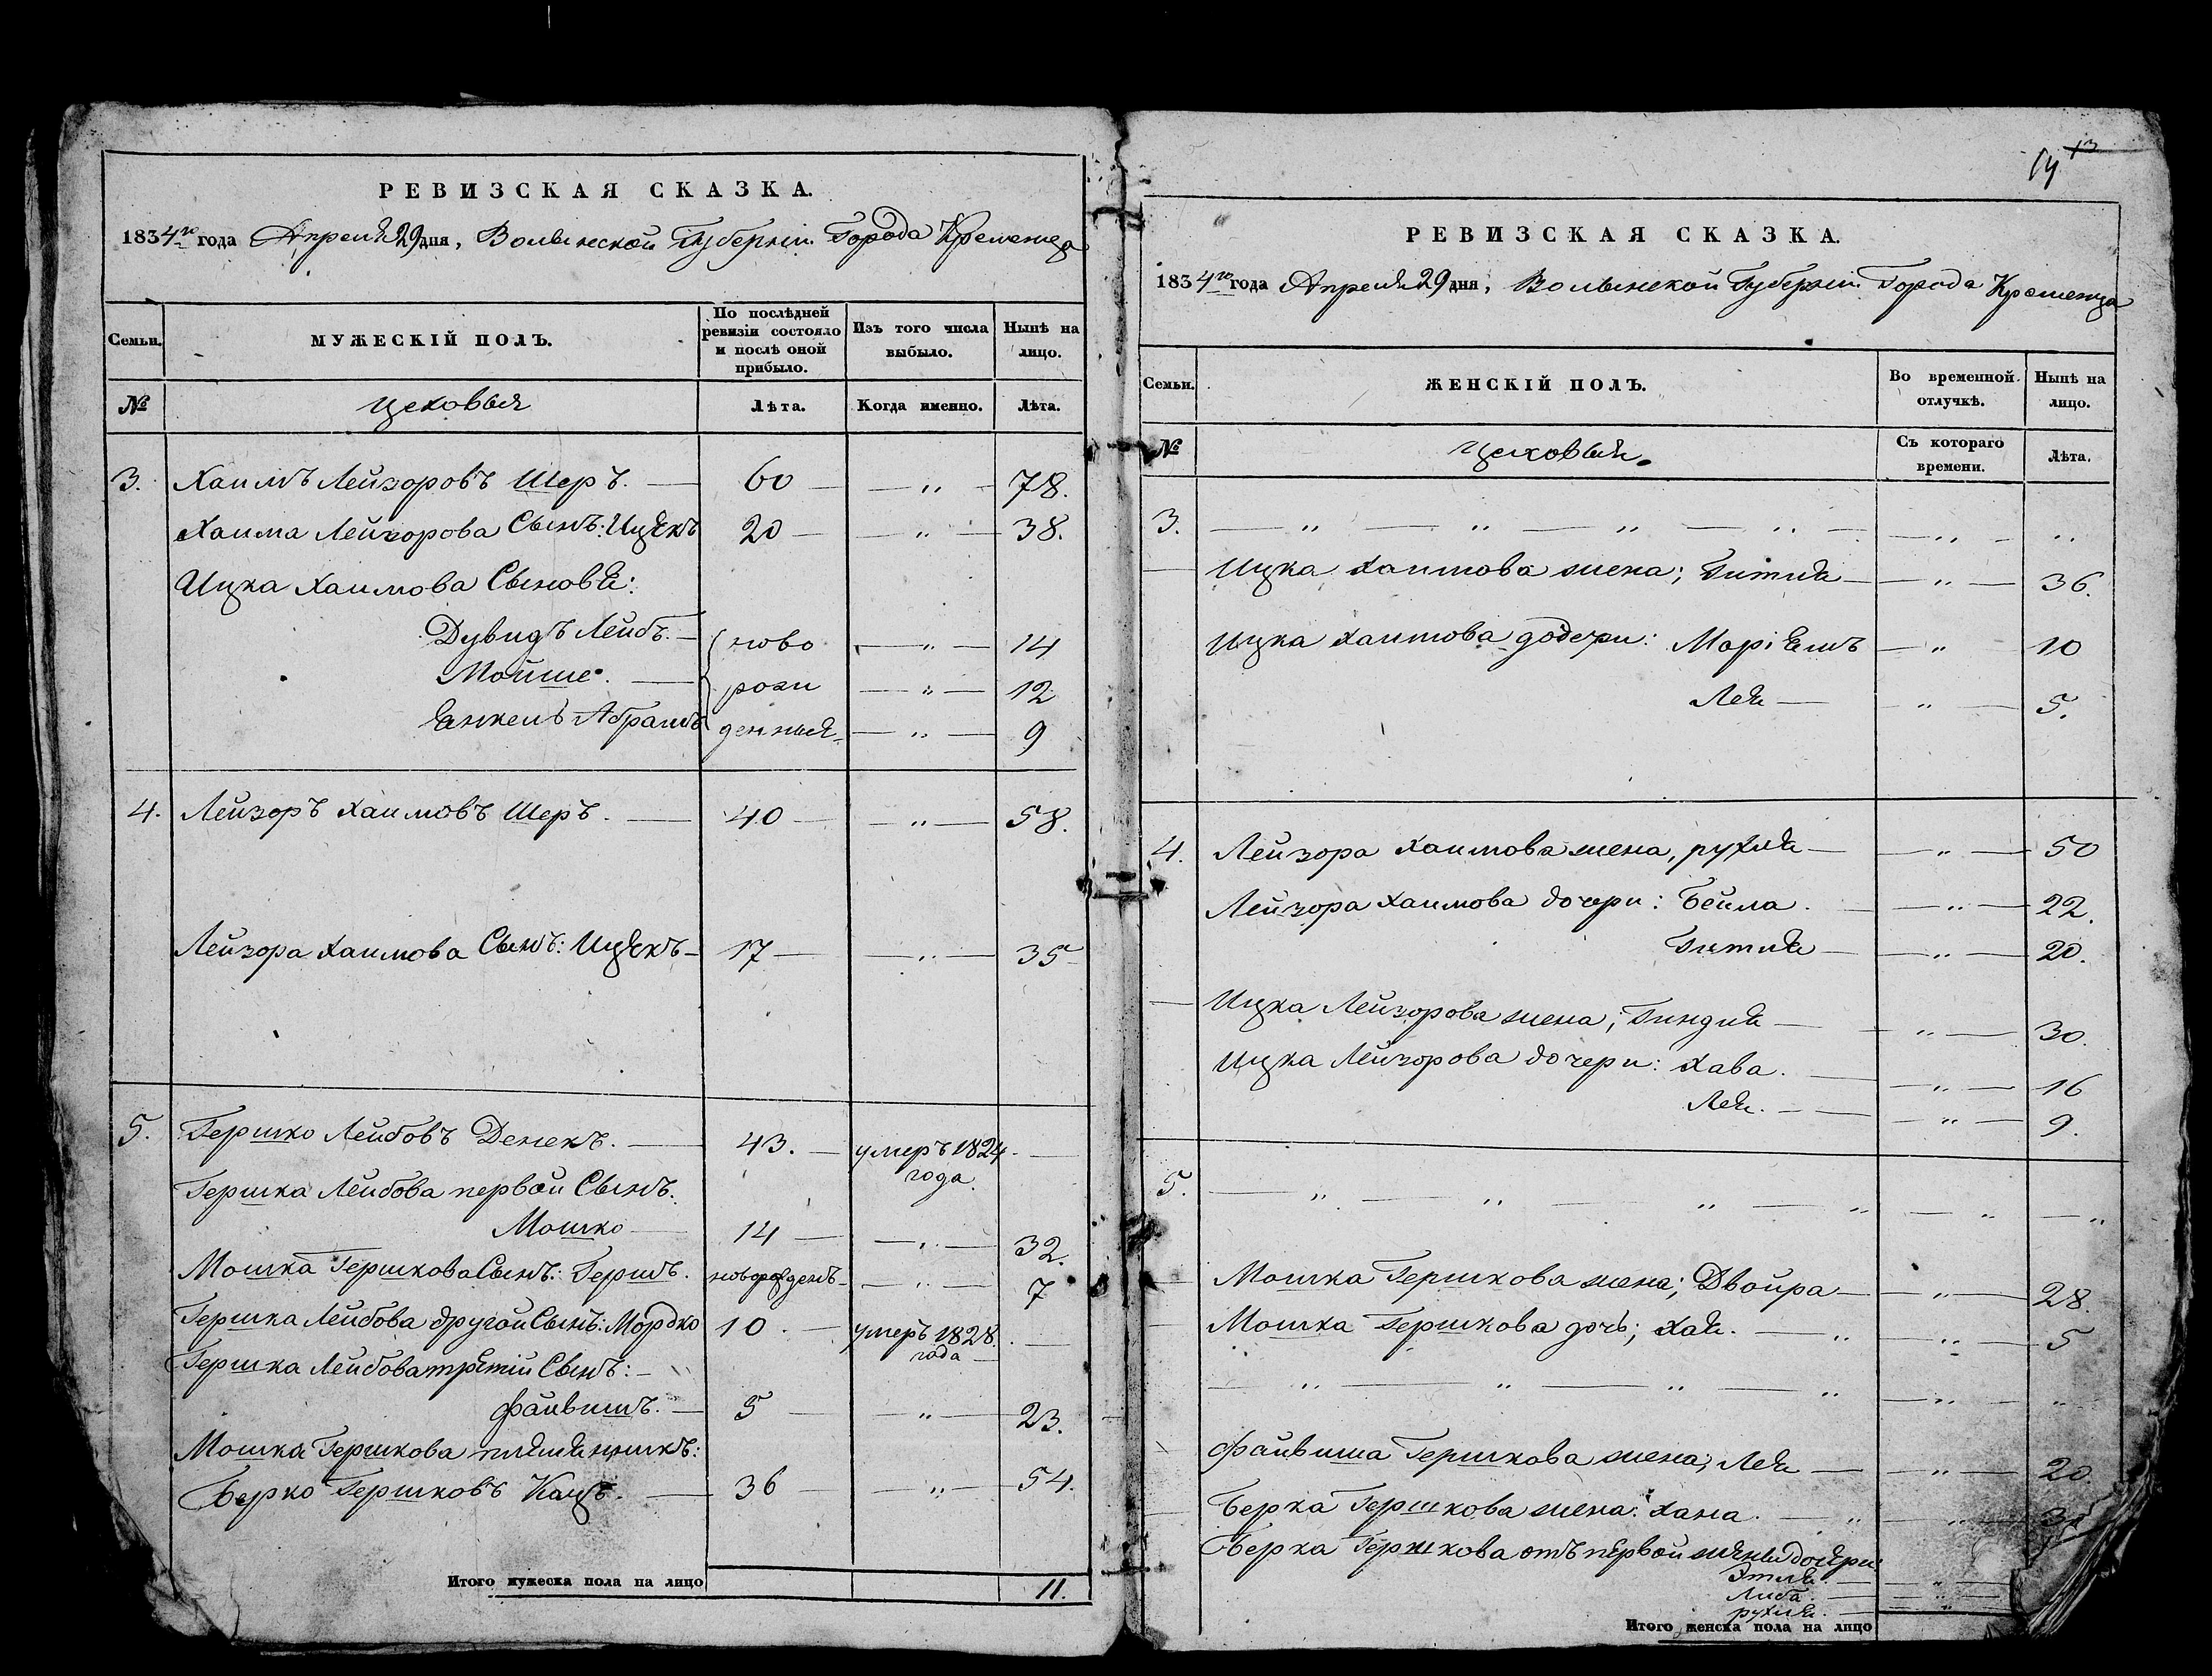 РЕВИЗСКАЯ СКАЗКА.
1834го года Апреля 29 дня, Волынской Губерніи Города Кременца
Семьи. МУЖЕСКІЙ ПОЛЪ. По послѣдней ревизіи состояло и послѣ оной прибыло. Изъ того числа выбыло. Нынѣ на лицо.
№ Цеховыя Лѣта. Когда именно. Лѣта.
3. Хаимъ Лейзоровъ Шеръ. — 60 — — „ — 78.
Хаима Лейзорова Сынъ: Ицекъ 20 — — „ — 38.
Ицка Хаимова Сыновя:
Дувидъ Лейбъ. — ново — „ — 14
Мойше. — рожи — „ — 12
Янкель Абрамъ денныя — „ — 9
4. Лейзоръ Хаимовъ Шеръ. — 40 — — „ — 58.
Лейзора Хаимова Сынъ: Ицекъ — 17 — — „ — 35
5. Гершко Лейбовъ Денекъ. — 43. — умеръ 1824 года. —
Гершка Лейбова первой Сынъ:
Мошко — 14 — — „ — 32.
Мошка Гершкова Сынъ: Гершъ. новорожденъ — — „ — 7
Гершка Лейбова другой Сынъ: Мордко 10. — умеръ 1828. года —
Гершка Лейбова третій Сынъ: —
Файвишъ. — 5 — — „ — 23.
Мошка Гершкова племянникъ:
Берко Гершковъ Кацъ. — 36 — — „ — 54.
Итого мужеска пола на лицо 11.
14 13
РЕВИЗСКАЯ СКАЗКА.
1834го года Апреля 29 дня, Волынской Губерніи Города Кременца
Семьи. ЖЕНСКІЙ ПОЛЪ. Во временной отлучкѣ. Нынѣ на лицо.
№ Цеховыя. Съ котораго времени. Лѣта.
3. — „ — „ — „ — „ — — „ — „
Ицка Хаимова жена; Гитля — — „ — 36.
Ицка Хаимова дочери: Маріемъ — „ 10
Лея — — „ — 5.
4. Лейзора Хаимова жена, рухля — — „ — 50
Лейзора Хаимова дочери: Бейла. — — „ — 22.
Гитля — — „ — 20.
Ицка Лейзорова жена; Гиндля — — „ — 30.
Ицка Лейзорова дочери: Хава. — — „ — 16
Лея. — — — „ — 9.
5. — „ — „ — „ — „ — „ — „
Мошка Гершкова жена; Двойра — — „ — 28.
Мошка Гершкова дочь; Хая. — „ — „ — 5
— „ — „ — „ — „ — „ — „
Файвиша Гершкова жена; Лея — — „ — 20.
Берка Гершкова жена: Хана. — „ — „ —
Берка Гершкова отъ первой жены дочери:
Этля. — — „ —
Либа. — — „ —
рухля. — — „ —
Итого женска пола на лицо